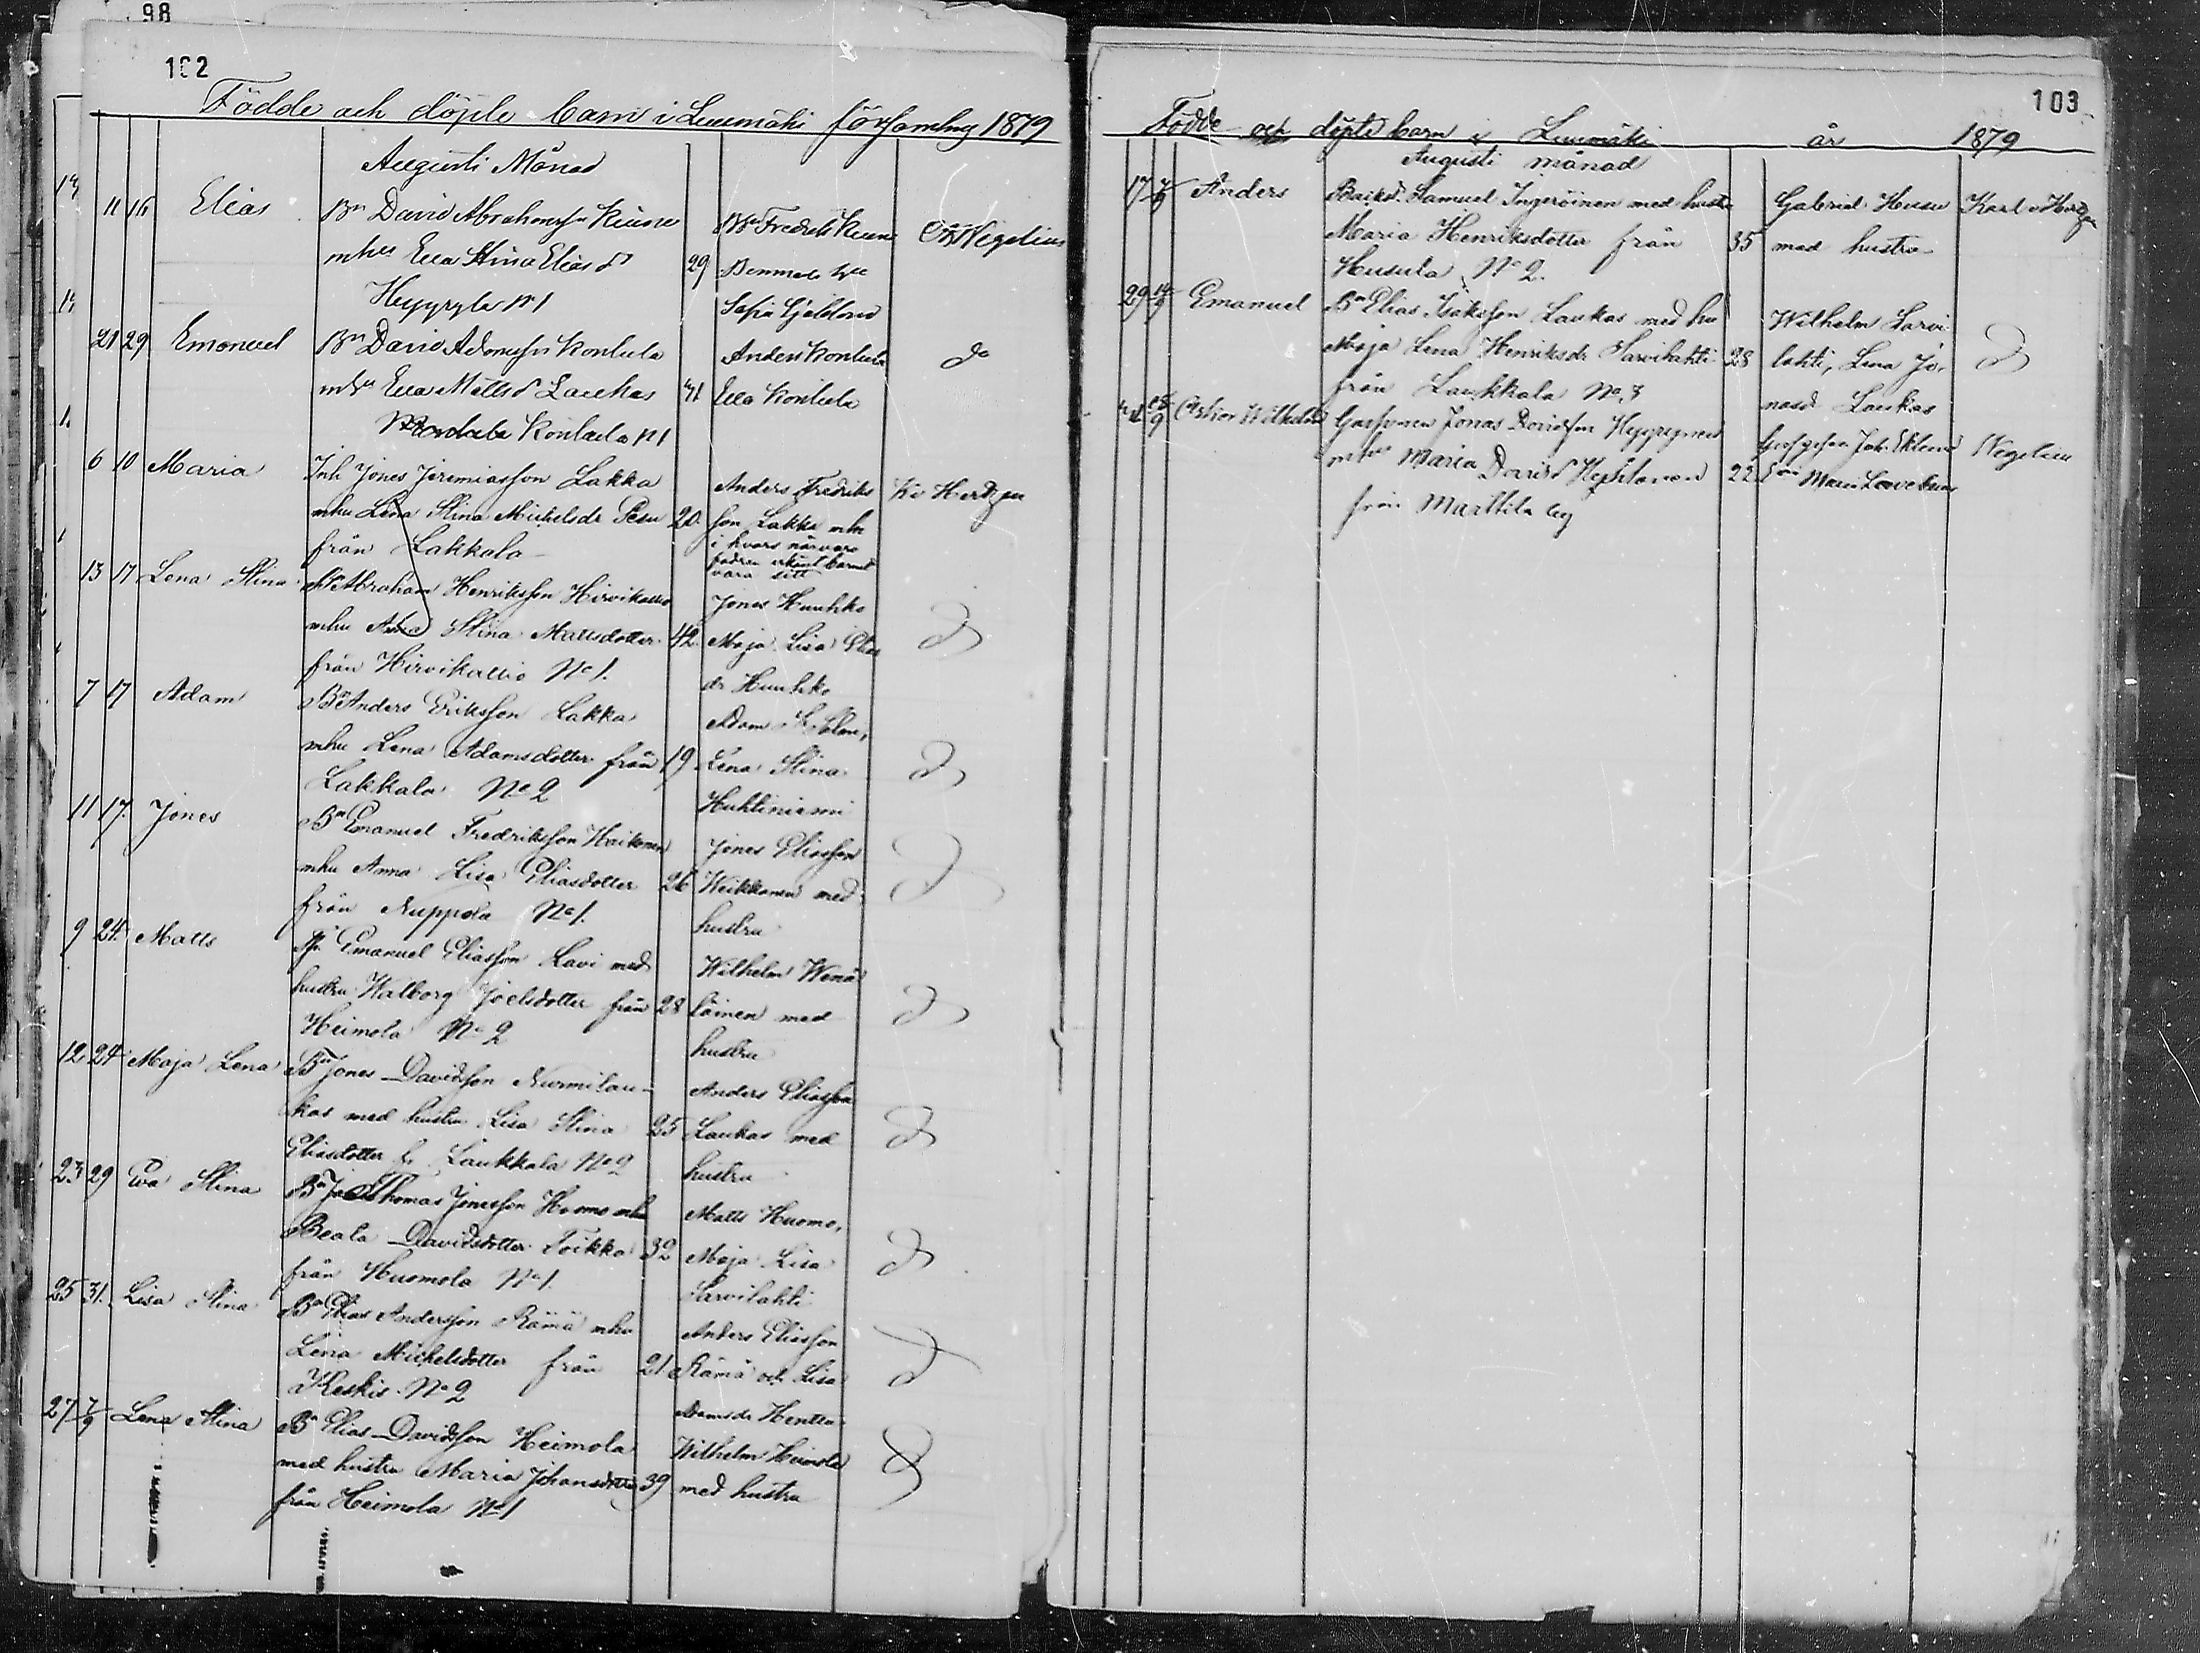 98
102
Födde och döpte barn i Luumäki församling 1879
Augusti Månad
11 16 Elias
Bn David Abrahamsson Kiuru
mhu Eva Stina Eliasdr 29
Heyrylä N 1
Bn Fredrik Kiuru
Sofia
Wegelius
21 29 Emanuel
Bn David Adamsson Kontula
mhu Eva Mattsd Laukas 41
Kontula N 1
Anders Kontula
Eva Kontula
do
6 10 Maria
Inh Jonas Jeremiasson Lakka
mhu Lena Stina Michelsdr Pesu 20
från Lakkala
Anders Fredriks
son Lakka mhu
i hvars närvaro
fadren erkänt barnet
vara sitt
K v Hertzen
13 17 Lena Stina
Abraham Henriksson Hirvikallio
mhu Anna Stina Mattsdotter 42
från Hirvikallio No 1.
Jonas Huuhko
Maja Lisa Elias
dr Huuhko
d
7 17 Adam
Bn Anders Eriksson Lakka
mhu Lena Adamsdotter från 19
Lakkala No 2
Adam
Lena Stina
Huhtiniemi
d
11 17. Jonas
Bn Emanuel Fredriksson Haikonen
mhu Anna Lisa Eliasdotter 26
från Nuppola No 1.
Jonas Eliasson
Weikkanen med
hustru
d
9 24. Matts
Emanuel Eliasson Lavi med
hustru Walborg Joelsdotter från 28
Heimola No 2
Wilhelm Wenä
läinen med
hustru
d
12 24 Maja Lena
Bn Jonas Davidsson Nurmilau-
kas med hustru Lisa Stina 25
Eliasdotter fr Laukkala No 2
Anders Eliasson
Laukas med
hustru
d
23 29 Eva Stina
Bn Thomas Jonasson Huomo mhu
Beata Davidsdotter Toikka 32
från Huomola No 1.
Matts Huomo,
Maja Lisa
Sarvilahti
d
25 31. Lisa Stina
Bn Elias Andersson Rämä mhu
Lena Michelsdotter från 21
Keskis No 2
Anders Eliasson
Rämä och Lisa
Adamsdr Henttu
d
27 7/9 Lena Stina
Bn Elias Davidsson Heimola
med hustru Maria Johansdotter 39
från Heimola No 1
Wilhelm Heimola
med hustru
d
103
Födde och döpte barn i Luumäki år 1879
Augusti månad
17 7/9 Anders
Samuel Ingeröinen med hustru
Maria Henriksdotter från 35
Husula No 2.
Gabriel Husu
med hustru
Karl v Hertzen
29 14/9 Emanuel
Bn Elias Isaksson Laukas med hu
Maja Lena Henriksdr Sarvilahti 28
från Laukkala No 3
Wilhelm Sarvi
lahti, Lena Jo-
nasdr Laukas
d
Oskar Wilhelm
Jonas Davidsson Heyrynen
mhu Maria Davidsd 22
från Marttila by
Joh. Eklund
Maria
Wegelius